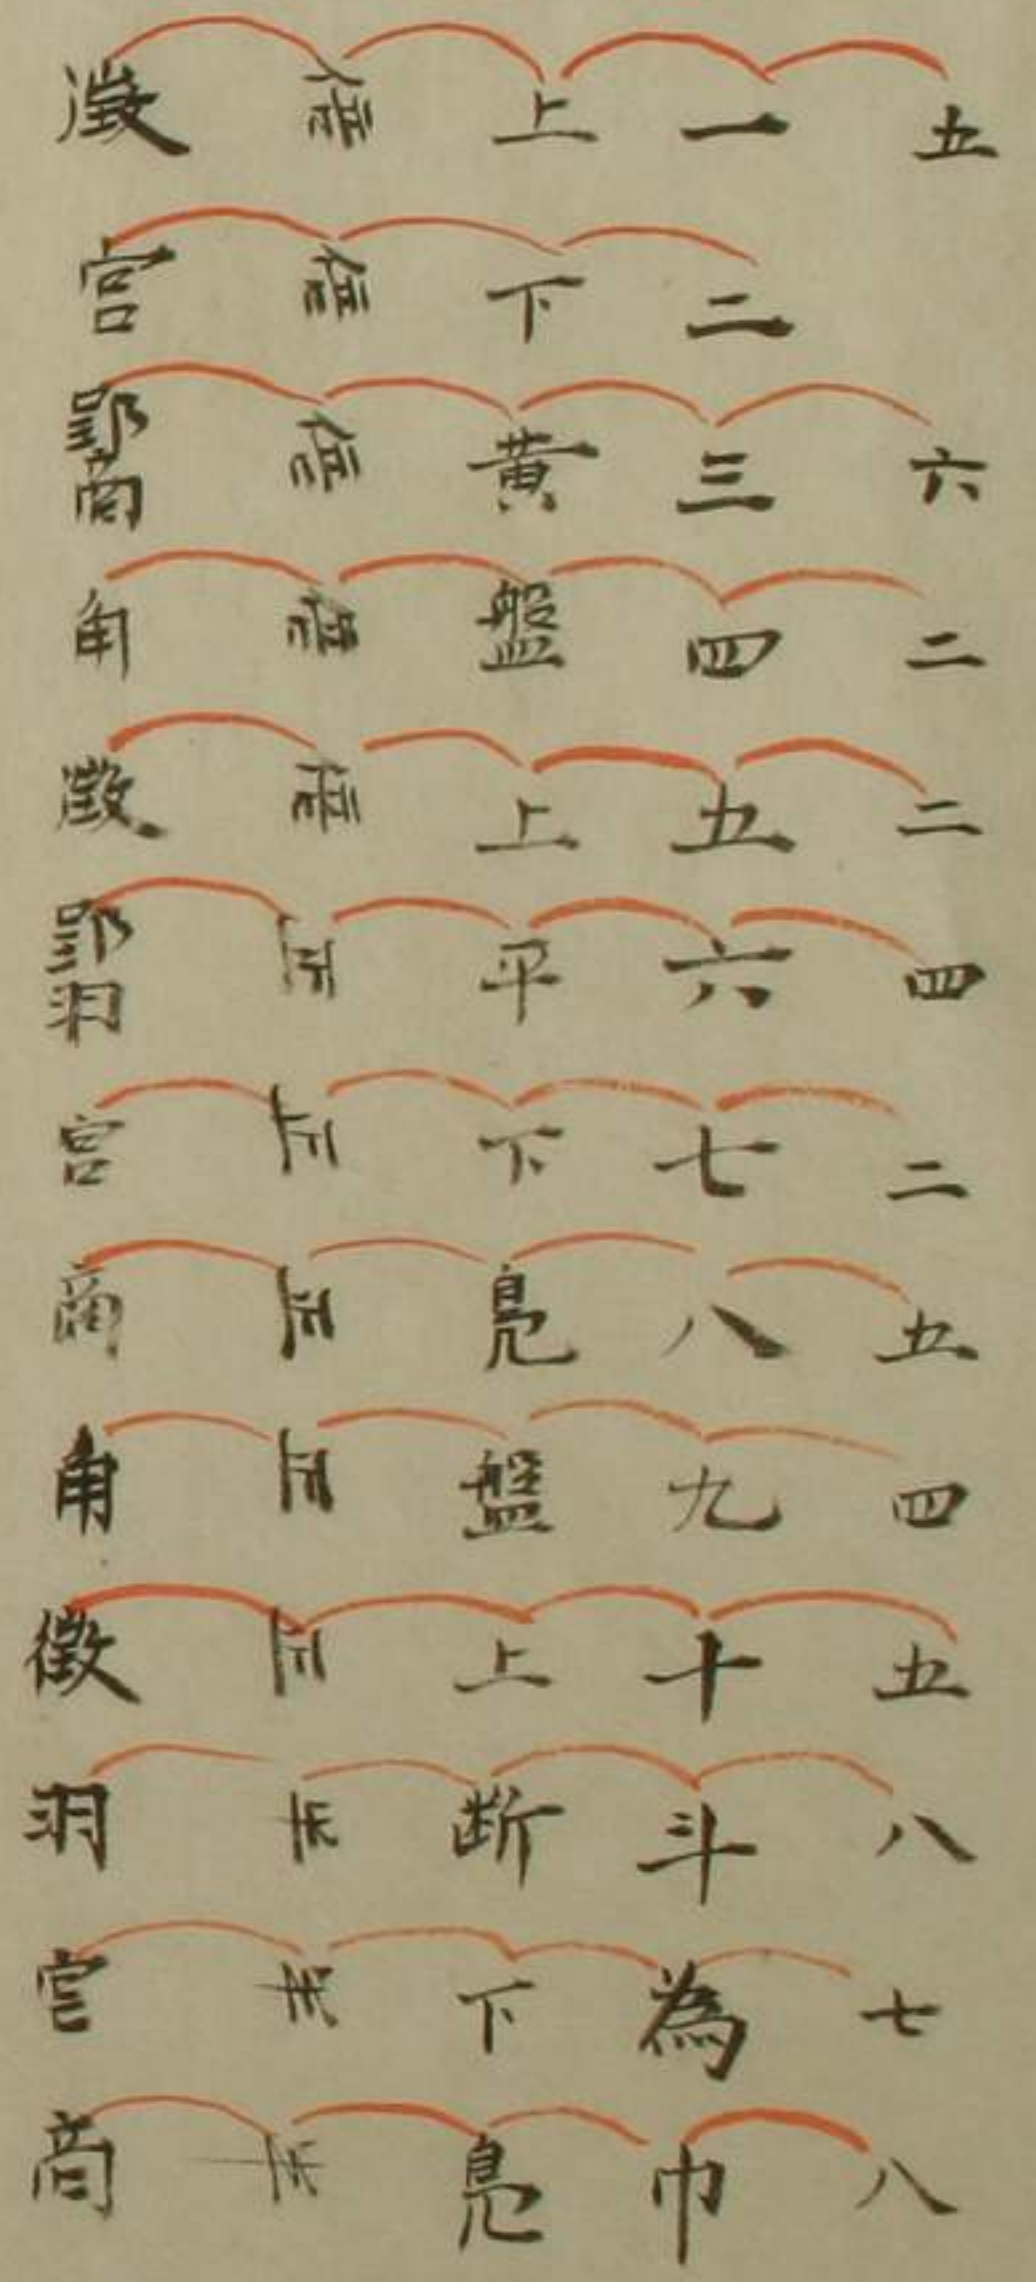 徵 上 一 五
宮 下 二
郢商 黄 三 六
角 盤 四 二
徵 上 五 二
郢羽 平 六 四
宮 下 七 二
商 鳬 八 五
角 盤 九 四
徵 上 十 五
羽 断 斗 八
宮 下 為 七
商 鳬 巾 八